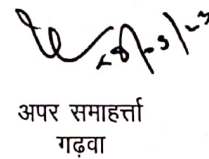 अपर समाहर्त्ता
गढ़वा